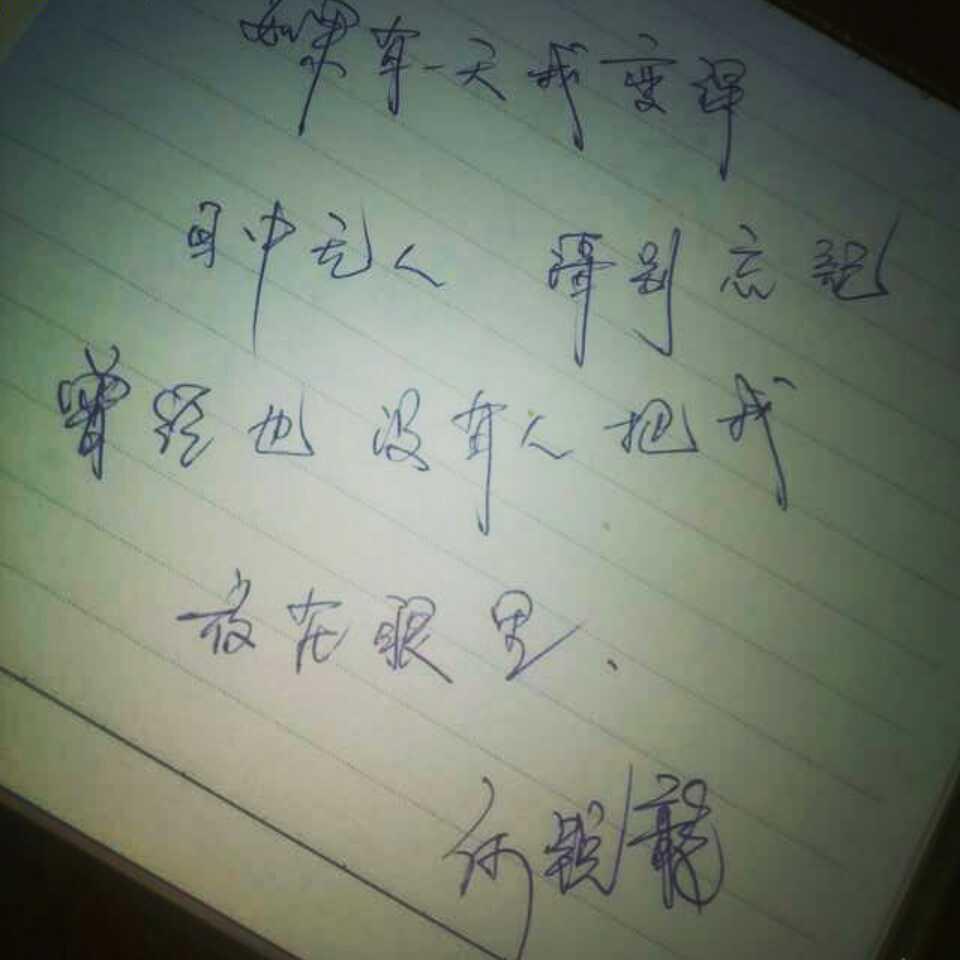 如果有一天我变得
目中无人 请别忘记
曾经也没有人把我
放在眼里.
何 龍